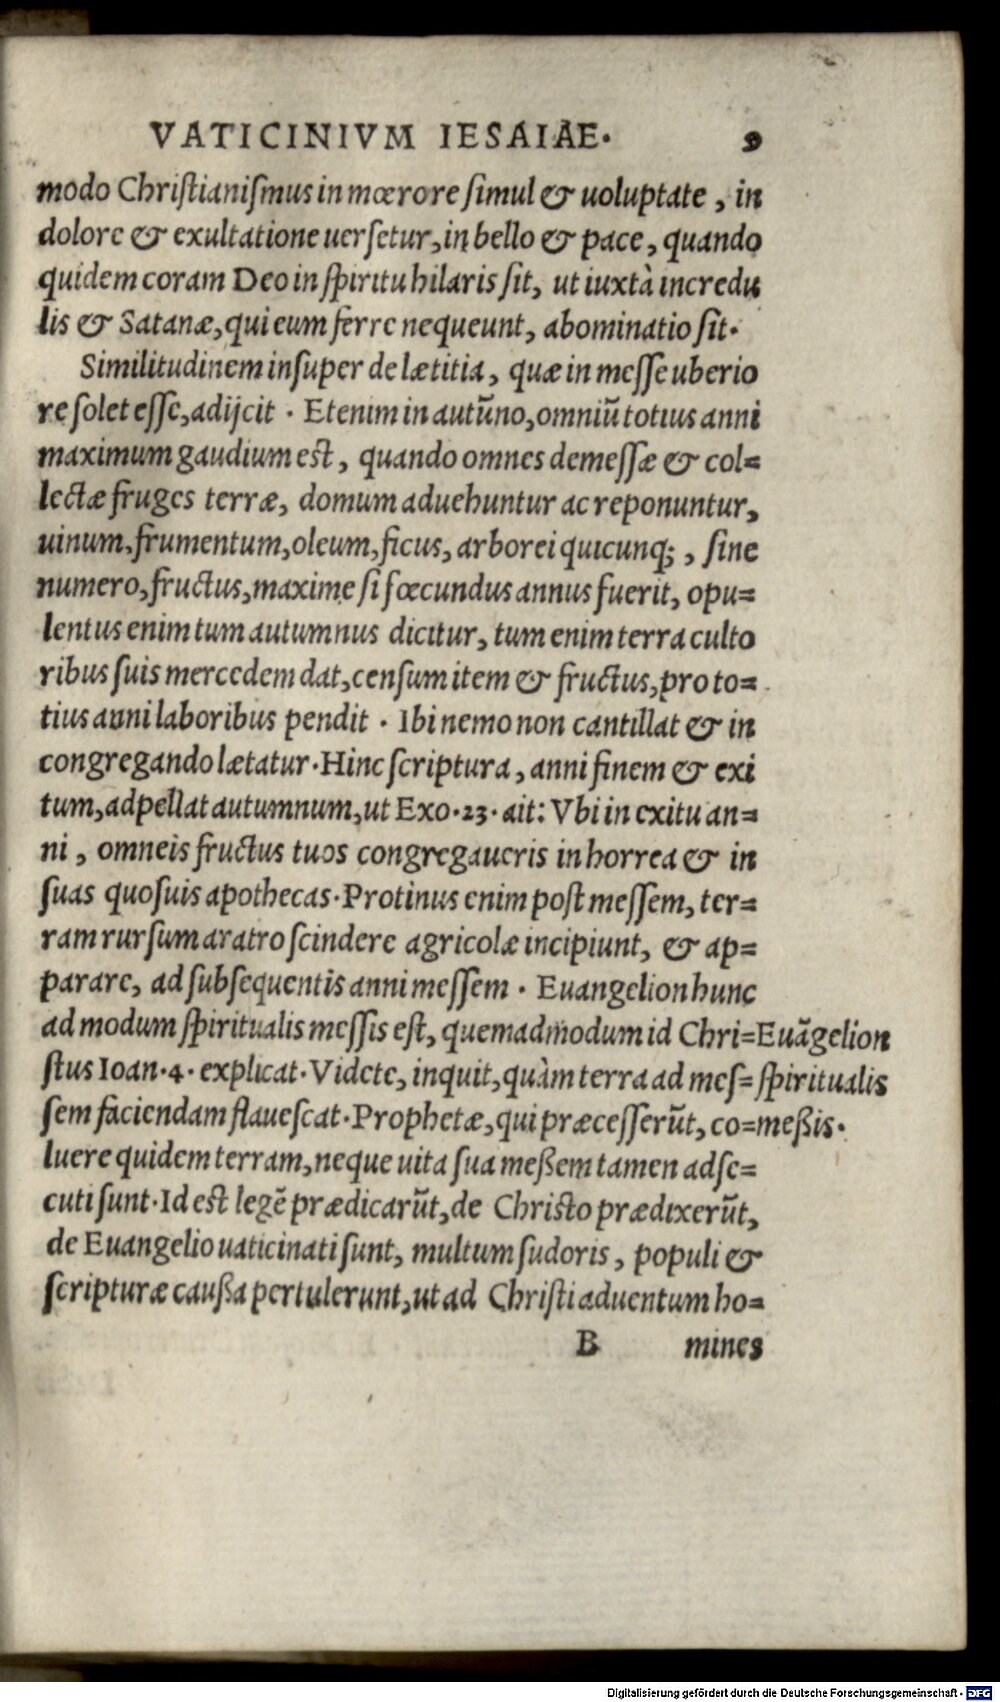 VATICINIVM IESAIAE. 9
modo Christianiſmus in mœrore ſimul & uoluptate, in
dolore & exultatione uerſetur, in bello & pace, quando
quidem coram Deo in ſpiritu hilaris ſit, ut iuxtà incredu
lis & Satanæ, qui eum ferre nequeunt, abominatio ſit.
Similitudinem inſuper de lætitia, quæ in meſſe uberio
re ſolet eſſe, adijcit. Etenim in autūno, omniū totius anni
maximum gaudium est, quando omnes demeſſæ & col=
lectæ fruges terræ, domum aduehuntur ac reponuntur,
uinum, frumentum, oleum, ficus, arborei quicunq;, ſine
numero, fructus, maxime ſi fœcundus annus fuerit, opu=
lentus enim tum autumnus dicitur, tum enim terra culto
ribus ſuis mercedem dat, cenſum item & fructus, pro to=
tius anni laboribus pendit. Ibi nemo non cantillat & in
congregando lætatur. Hinc ſcriptura, anni finem & exi
tum, adpellat autumnum, ut Exo. 23. ait: Vbi in exitu an=
ni, omneis fructus tuos congregaueris in horrea & in
ſuas quoſuis apothecas. Protinus enim poſt meſſem, ter=
ram rurſum aratro ſcindere agricolæ incipiunt, & ap=
parare, ad ſubſequentis anni meſſem. Euangelion hunc
ad modum ſpiritualis meſſis eſt, quemadmodum id Chri= Euāgelion
ſtus Ioan. 4. explicat. Videte, inquit, quàm terra ad meſ= ſpiritualis
ſem faciendam flaueſcat. Prophetæ, qui præceſſerūt, co= meßis.
luere quidem terram, neque uita ſua meßem tamen adſe=
cuti ſunt. Id est legē prædicarūt, de Christo prædixerūt,
de Euangelio uaticinati ſunt, multum ſudoris, populi &
ſcripturæ caußa pertulerunt, ut ad Chriſti aduentum ho=
B mines
Digitalisierung gefördert durch die Deutsche Forschungsgemeinschaft - DFG